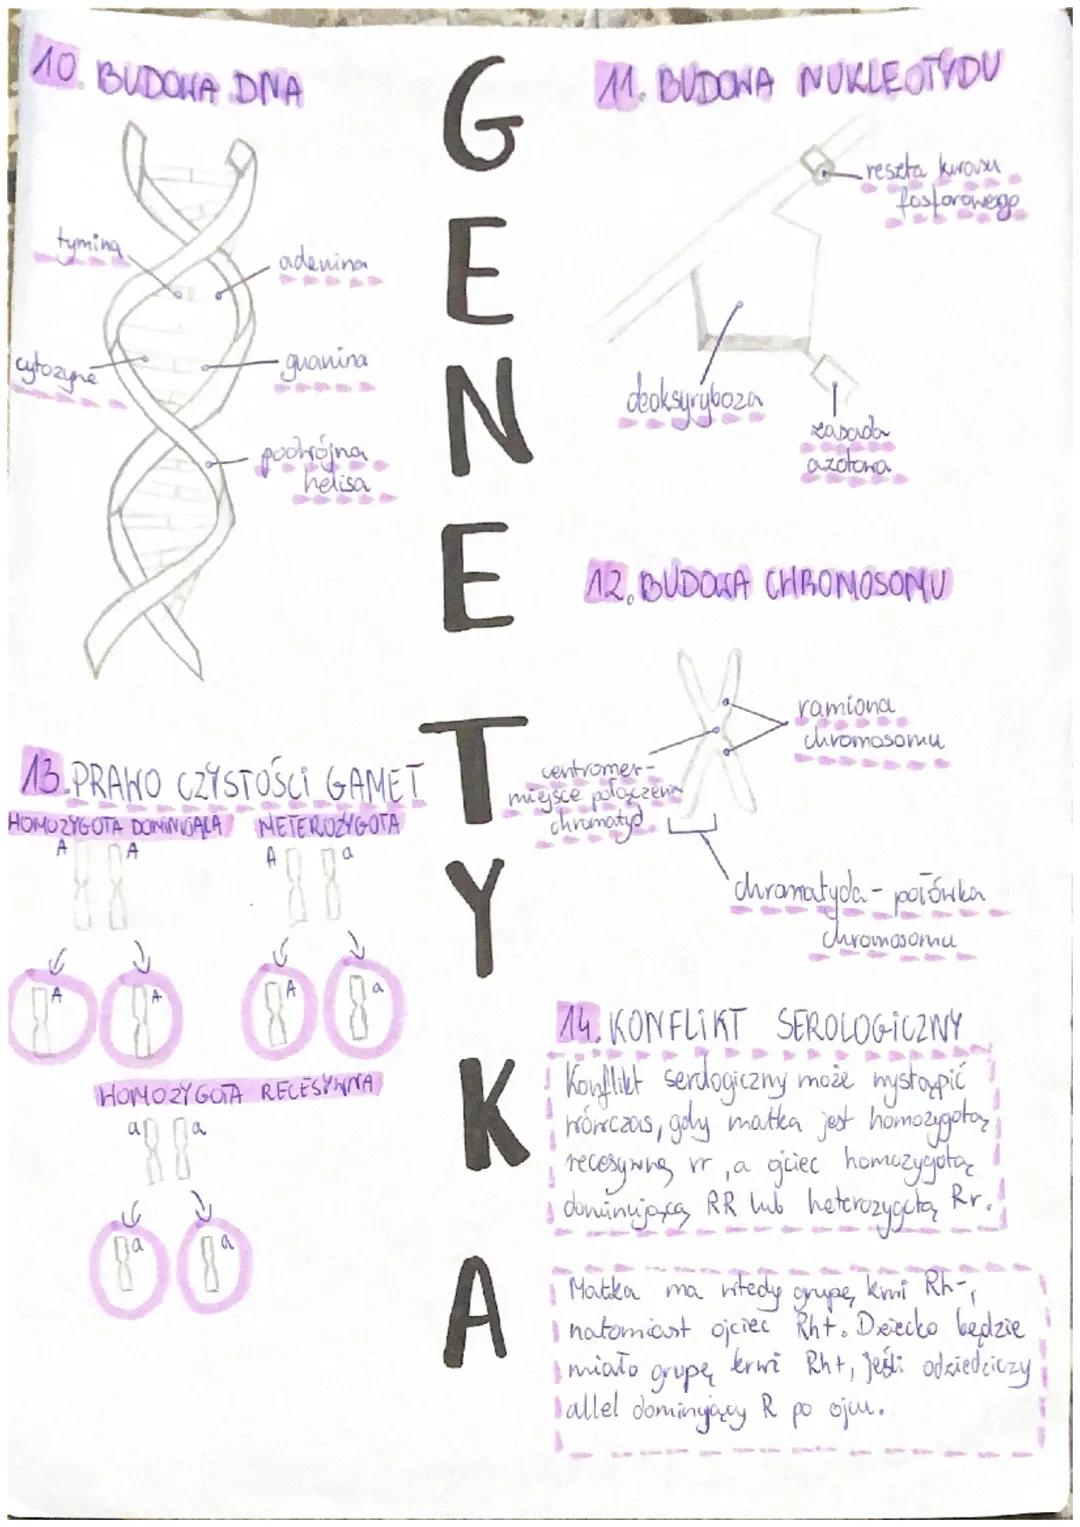 10. BUDOWA DNA
tymina
adenina
cytozyna
guanina
podwójna
helisa
GENETYKA
11. BUDOWA NUKLEOTYDU
reszta kwasu
fosforowego
deoksyryboza
zasada
azotowa
12. BUDOWA CHROMOSOMU
ramiona
chromosomu
centromer-
miejsce połączenia
chromatyd
chromatyda - połówka
chromosomu
13. PRAWO CZYSTOŚCI GAMET
HOMOZYGOTA DOMINUJĄCA
A A
A A
HETEROZYGOTA
A a
A a
HOMOZYGOTA RECESYWNA
a a
a a
14. KONFLIKT SEROLOGICZNY
Konflikt serologiczny może wystąpić
wówczas, gdy matka jest homozygotą
recesywną rr, a ojciec homozygotą
dominującą RR lub heterozygotą Rr.
Matka ma wtedy grupę krwi Rh-,
natomiast ojciec Rh+. Dziecko będzie
miało grupę krwi Rh+, jeśli odziedziczy
allel dominujący R po ojcu.